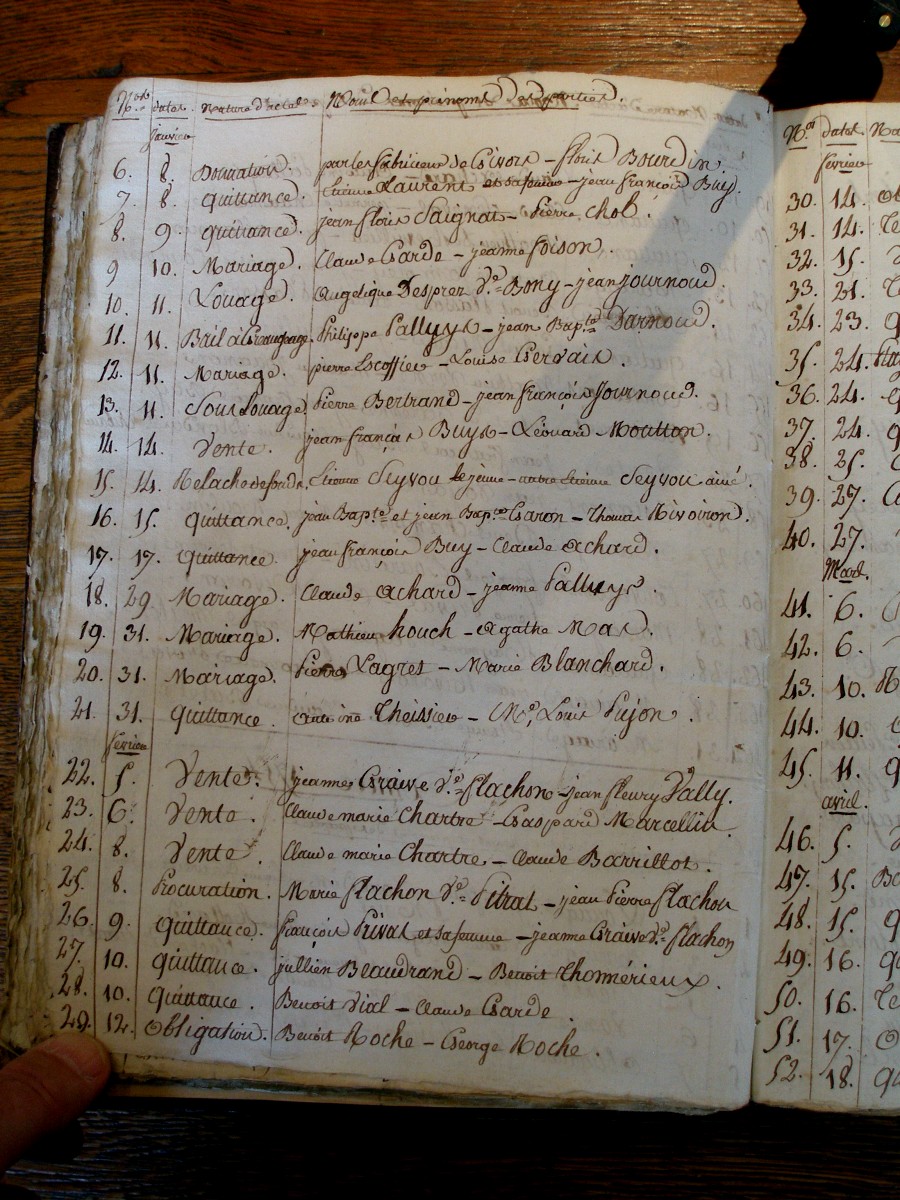 Nos dates. Nature d'actes. Noms et prénoms des parties.
janvier
6. 8. Donnation. par les de Givors - floris Bourdin.
7. 8. quittance. Etienne Laurent et sa femme - jean françois Buy.
8. 9. quittance. jean floris Saignat - Pierre Chol.
9 10. Mariage. Claude Garde - jeanne foison.
10. 11. Louage. Angelique Desprez Ve. Bony - jean journoud.
11. 11. Bail à Philippe Palluys - jean Bapte. Darnoud.
12. 11. Mariage. pierre Escoffier - Louise Gervais.
13. 11. Sous Louage. Pierre Bertrand - jean françois journoud.
14. 14. Vente. jean françois Buys - Léonard Moutton.
15. 14. Relache de fonds. Etienne Seyvou le jeune - autre Etienne Seyvou ainé.
16. 15. quittance. jean Bapte. et jean Bapte. Caron - Thomas Rivoiron.
17. 17. quittance. jean françois Buy - Claude Achard.
18. 29. Mariage. Claude Achard - jeanne Palluys.
19. 31. Mariage. Mathieu houch - Agathe Mas.
20. 31. Mariage. Pierre Lagret - Marie Blanchard.
21. 31. quittance. Theissier - Me. Louis Pujon.
février
22. 5. Vente. jeanne Graive Ve. flachon - jean fleury Vally.
23. 6. Vente. Claude marie Chartre - Gaspard Marcellin.
24. 8. Vente. Claude marie Chartre - Claude Barrillot.
25. 8. Procuration. Marie flachon Ve. Pitrat - jean Pierre flachon
26. 9. quittance. françois Privat et sa femme - jeanne Graive Ve. flachon
27. 10. quittance. jullien Beaudrand - Benoit Thomérieux.
28. 10. quittance. Benoit Vial - Claude Garde.
29. 12. Obligation. Benoit Roche - George Roche.
Nos dates Na
février
30. 14.
31. 14.
32. 15.
33. 21.
34. 23. q
35. 24.
36. 24. q
37. 24. q
38. 25.
39. 27.
40. 27.
Mars.
41. 6.
42. 6.
43. 10.
44. 10.
45. 11. q
avril.
46. 5.
47. 15.
48. 15. q
49. 16. q
50. 16.
51. 17. O
52. 18. qu